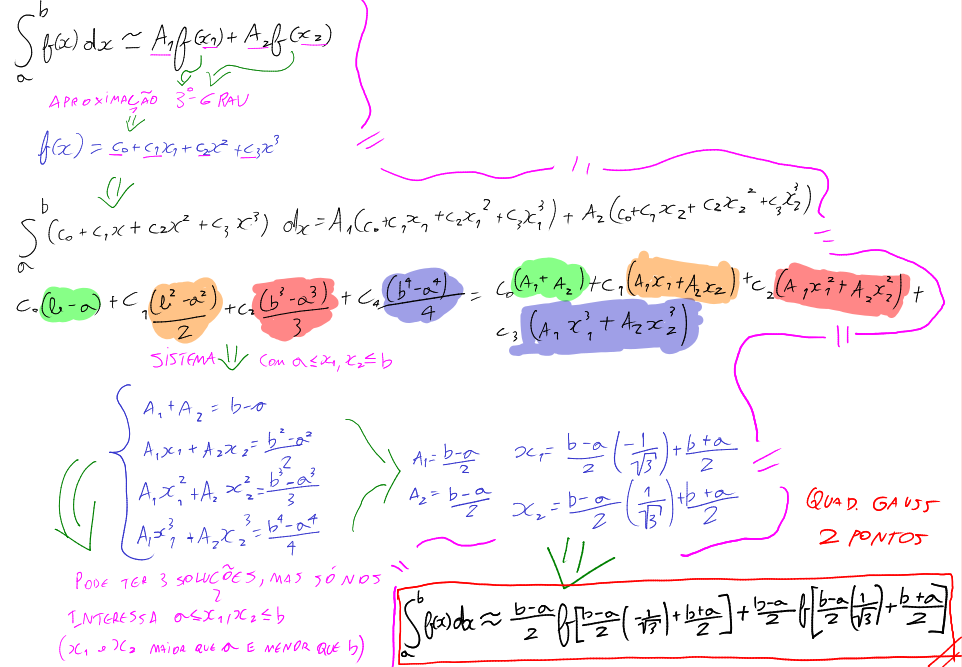 ∫_a^b f(x) dx ≃ A₁f(x₁) + A₂f(x₂)
APROXIMAÇÃO 3º GRAU
f(x) = c₀ + c₁x₁ + c₂x² + c₃x³
∫_a^b (c₀ + c₁x + c₂x² + c₃x³) dx = A₁(c₀ + c₁x₁ + c₂x₁² + c₃x₁³) + A₂(c₀ + c₁x₂ + c₂x₂² + c₃x₂³)
c₀(b-a) + c₁(b²-a²)/2 + c₂(b³-a³)/3 + c₄(b⁴-a⁴)/4 = c₀(A₁+A₂) + c₁(A₁x₁+A₂x₂) + c₂(A₁x₁²+A₂x₂²) +
c₃(A₁x₁³ + A₂x₂³)
SISTEMA com a≤x₁,x₂≤b
A₁ + A₂ = b-a
A₁x₁ + A₂x₂ = b²-a²/2
A₁x₁² + A₂x₂² = b³-a³/3
A₁x₁³ + A₂x₂³ = b⁴-a⁴/4
A₁ = b-a/2 x₁ = b-a/2 (-1/√3) + b+a/2
A₂ = b-a/2 x₂ = b-a/2 (1/√3) + b+a/2
QUAD. GAUSS
2 PONTOS
PODE TER 3 SOLUÇÕES, MAS SÓ NOS
INTERESSA a≤x₁,x₂≤b
(x₁ e x₂ MAIOR QUE a E MENOR QUE b)
∫_a^b f(x)dx ≈ b-a/2 f[b-a/2 (-1/√3) + b+a/2] + b-a/2 f[b-a/2 (1/√3) + b+a/2]